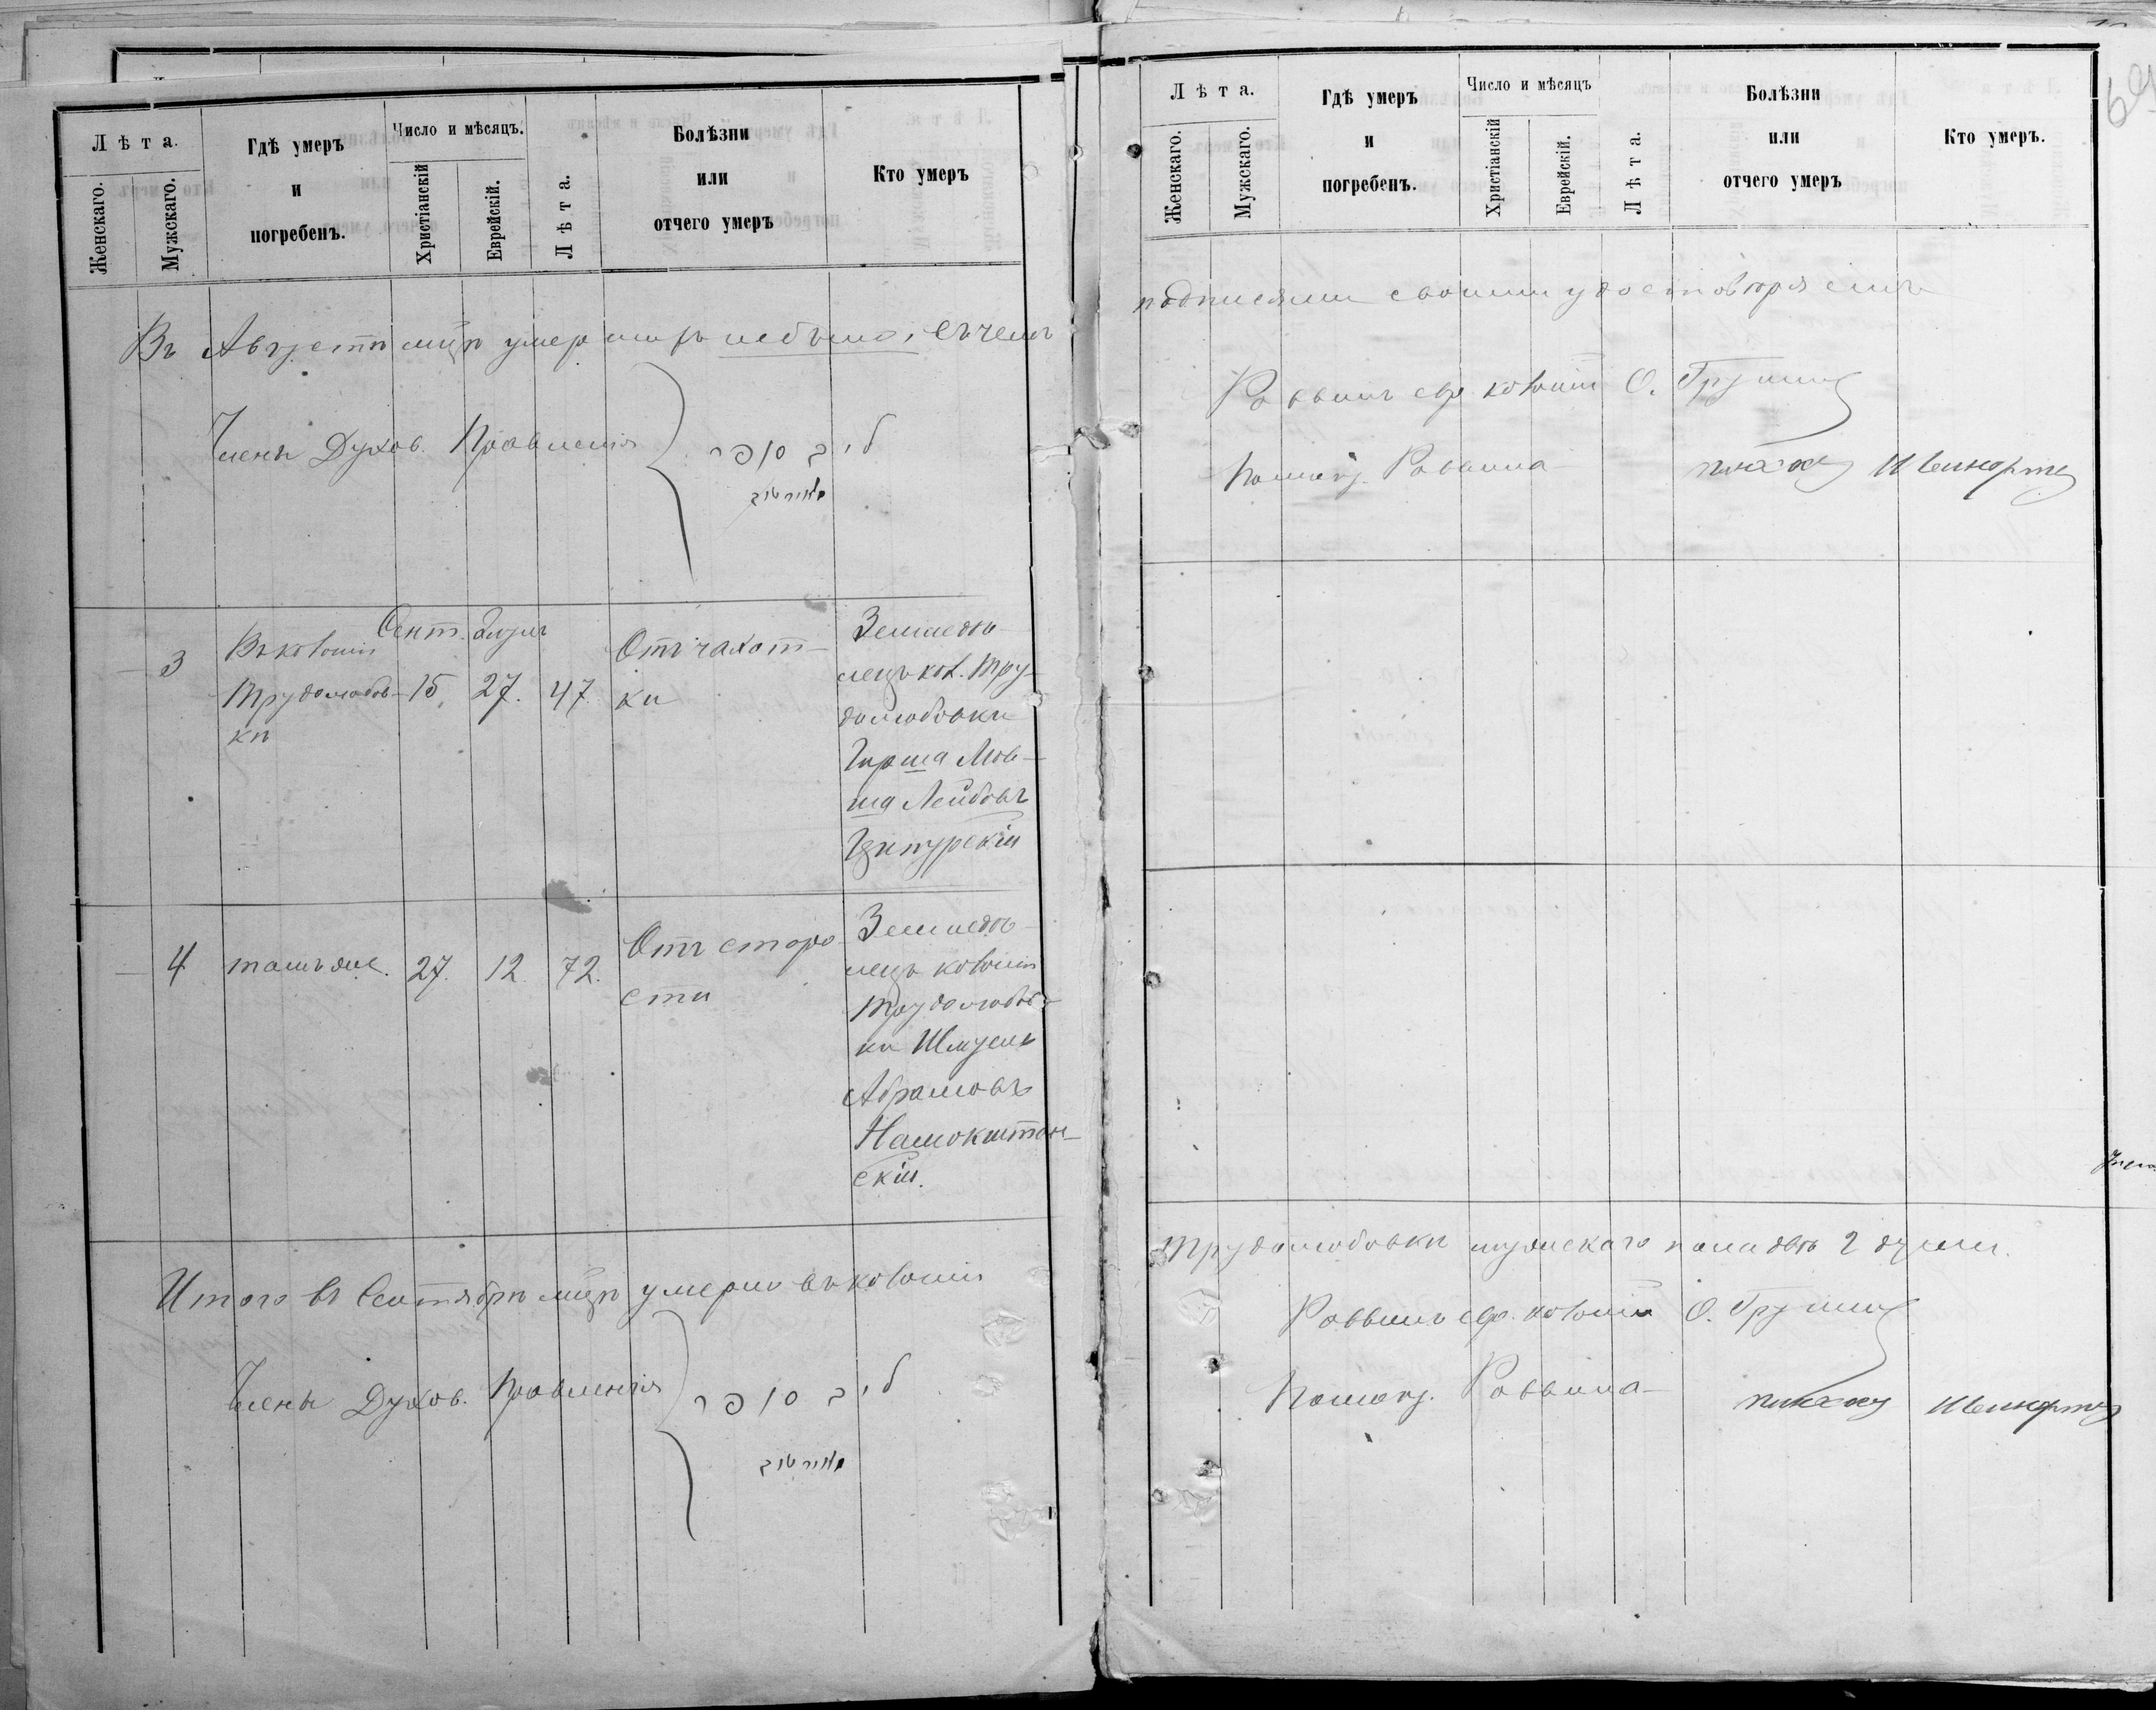 Лѣта.
Женскаго.
Мужскаго.
Гдѣ умеръ
и
погребенъ.
Число и мѣсяцъ.
Христіанскій
Еврейскій.
Лѣта.
Болѣзни
или
отчего умеръ
Кто умеръ
Въ Августѣ мцѣ умершихъ небыло, въ чемъ
Члены Духов. Правленія
3
Въ колоніи
Трудолюбов-
кѣ
Сент.
15.
Элулъ
27.
47
Отъ чахот-
ки
Земледѣ-
лецъ кол. Тру-
долюбовки
Гирша Мов-
ша Лейбовъ
4
тамъ же.
27.
12
72.
Отъ старо
сти
Земледѣ-
лецъ колоніи
Трудолюбов-
ки Шмуель
Абрамовъ
скій.
Итого въ Сентябрѣ мцѣ умерло въ колоніи
Члены Духов. Правленія
Лѣта.
Женскаго.
Мужскаго.
Гдѣ умеръ
и
погребенъ.
Число и мѣсяцъ
Христіанскій
Еврейскій.
Лѣта.
Болѣзни
или
отчего умеръ
Кто умеръ.
подписями своими удостовѣряемъ
Раввинъ евр. колоній О.
Помощ. Раввина Пинхос
Трудолюбовки мужскаго пола двѣ 2 души.
Раввинъ евр. колоній О.
Помощ. Раввина Пинхос